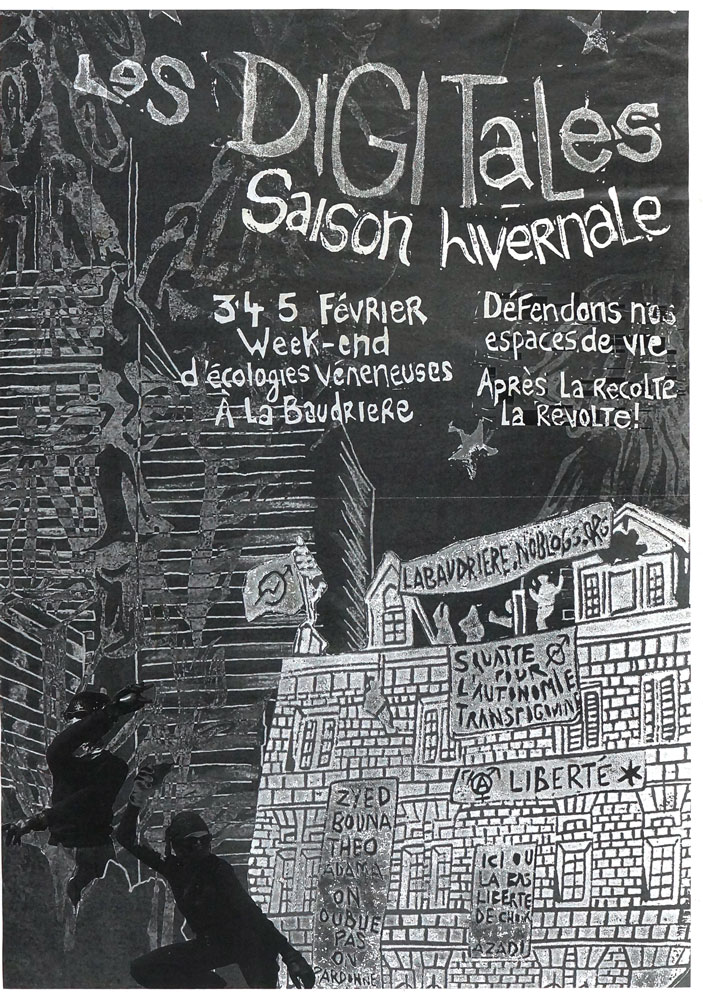 Les DIGITaLes
Saison hivernale
3 4 5 Février
Week-end
d'écologies vénéneuses
À La Baudriere
Défendons nos
espaces de vie
Après La récolte
La révolte!
LABAUDRIERE.NOBLOGS.ORG
SQUATTE
POUR
L'AUTONOMIE
TRANSPIGOUINE
LIBERTÉ*
ZYED
BOUNA
THEO
ADAMA
ON
OUBLIE
PAS
ON
PARDONNE
ICI OU
LA BAS
LIBERTE
DE CHOIX
AZADI